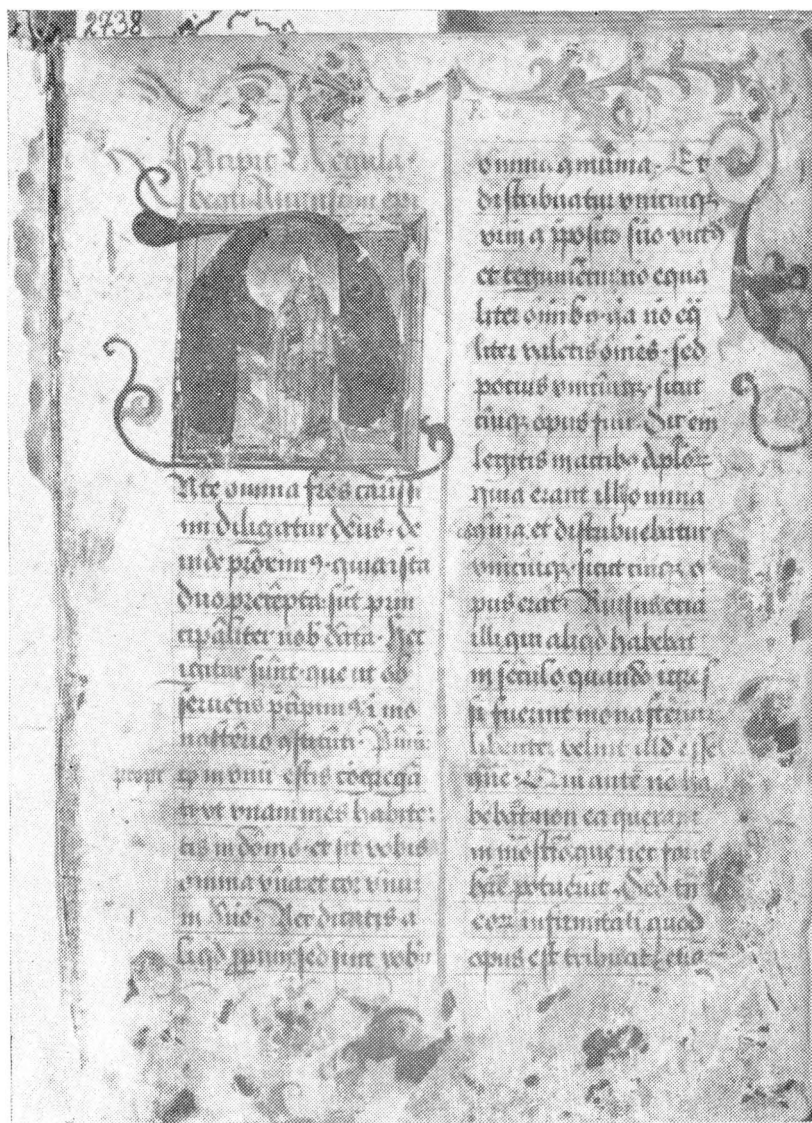 2738
Incipit Regula
beati Augustini epi
Ante omnia frēs carissi
mi diligatur dēus · de
inde prōximꝯ · quia ista
duo precēpta sūt prin
cipāliter nob dāta · Hec
igitur sūnt · que ut ob
seruetis p̄cipimꝯ · i mo
nastērio ꝯstituti · Primū
propt
ꝙ in vnū estis cōgregā
ti vt vnanimes habite
tis in dōmo · et sit vobis
anima vna et cor vnū
in deo · Nec dicatis a
liqd ꝓpriū sed sint vobis
omnia ꝯmunia · Et
distribuatur vnicuiqꝫ
vr̄m a p̄posito vr̄o victꝰ
et tegumētū · nō equa
liter omnibꝯ · qa nō eq̄
liter valetis omēs · sed
potius vnicuiqꝫ · sicut
cuiqꝫ opus fuīt · Sic em̄
legitis in actibꝯ Aplōꝝ
quia erant illis omnia
ꝯmūia · et distribuebatur
vnicuiqꝫ · sicut cuiqꝫ o
pus erat ·
illi qui aliqd habebāt
in sēculō quando īgres
si fuerint monastēriū
libenter velint illd esse
Qui autē nō ha
bebāt non ea querant
in mōstīo que nec foris
habē potuerūt · Sed tn̄
eoꝝ infirmitāti quod
opus est tribuat